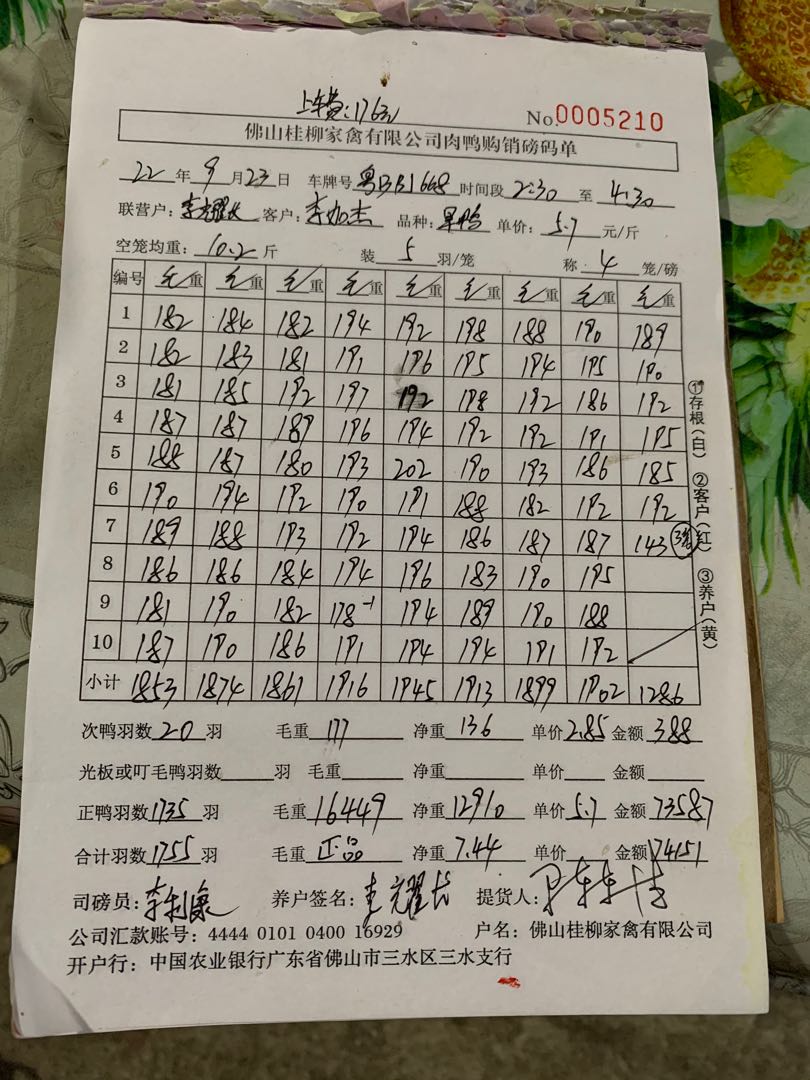 上车费:176元
No.0005210
佛山桂柳家禽有限公司肉鸭购销磅码单
22年9月23日 车牌号粤BB1668时间段2:30至4:30
联营户:李耀长 客户:李加杰 品种:旱鸭 单价:5.7元/斤
空笼均重:10.2斤 装5羽/笼 称4笼/磅
编号 毛重 毛重 毛重 毛重 毛重 毛重 毛重 毛重 毛重
1 182 184 182 194 192 198 188 190 189
2 182 183 181 191 196 195 194 195 190
3 181 185 192 197 192 198 192 186 192
4 187 187 189 196 194 192 192 191 195
5 188 187 180 193 202 190 193 186 185
6 190 194 192 190 191 188 182 192 192
7 189 188 193 192 194 186 187 187 143 3笼
8 186 186 184 194 196 183 190 195
9 181 190 182 178-1 194 189 190 188
10 187 190 186 191 194 194 191 192
小计 1853 1874 1861 1916 1945 1913 1899 1902 1286
①存根(白) ②客户(红) ③养户(黄)
次鸭羽数20羽 毛重177 净重136 单价2.85金额388
光板或叮毛鸭羽数 羽 毛重 净重 单价 金额
正鸭羽数1735羽 毛重16449 净重12910 单价5.7金额73587
合计羽数1755羽 毛重正品 净重7.44 单价 金额74151
司磅员:李利康 养户签名:李耀长 提货人:
公司汇款账号:4444 0101 0400 16929 户名:佛山桂柳家禽有限公司
开户行:中国农业银行广东省佛山市三水区三水支行